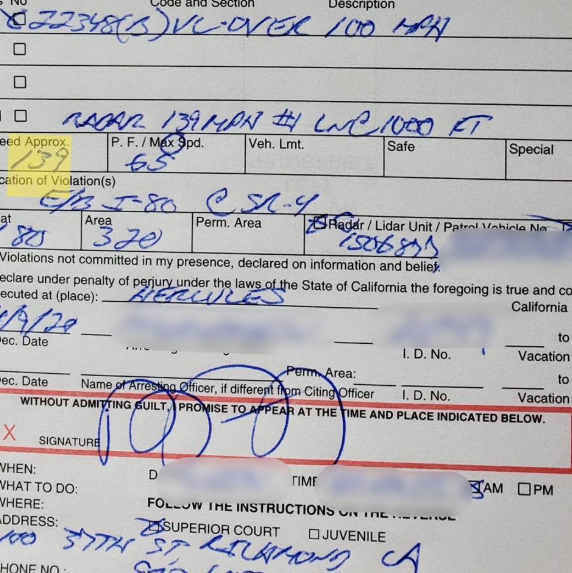 s No Code and Section Description
22348(B) VC-OVER 100 MPH
RADAR 139 MPH #1 LNE 1000 FT
eed Approx. P. F. / Max Spd. Veh. Lmt. Safe Special
139 65
cation of Violation(s)
E/B I-80 @ SR-4
at Area Perm. Area Radar / Lidar Unit / Patrol Vehicle No.
80 320
Violations not committed in my presence, declared on information and belief.
eclare under penalty of perjury under the laws of the State of California the foregoing is true and co
ecuted at (place): HERCULES California
/9/20 to
ec. Date I. D. No. Vacation
Perm. Area: to
ec. Date Name of Arresting Officer, if different from Citing Officer I. D. No. Vacation
WITHOUT ADMITTING GUILT, I PROMISE TO APPEAR AT THE TIME AND PLACE INDICATED BELOW.
X SIGNATURE
WHEN: D TIME AM PM
WHAT TO DO: FOLLOW THE INSTRUCTIONS ON THE REVERSE
WHERE: SUPERIOR COURT JUVENILE
ADDRESS:
100 37TH ST RICHMOND CA
HONE NO.: